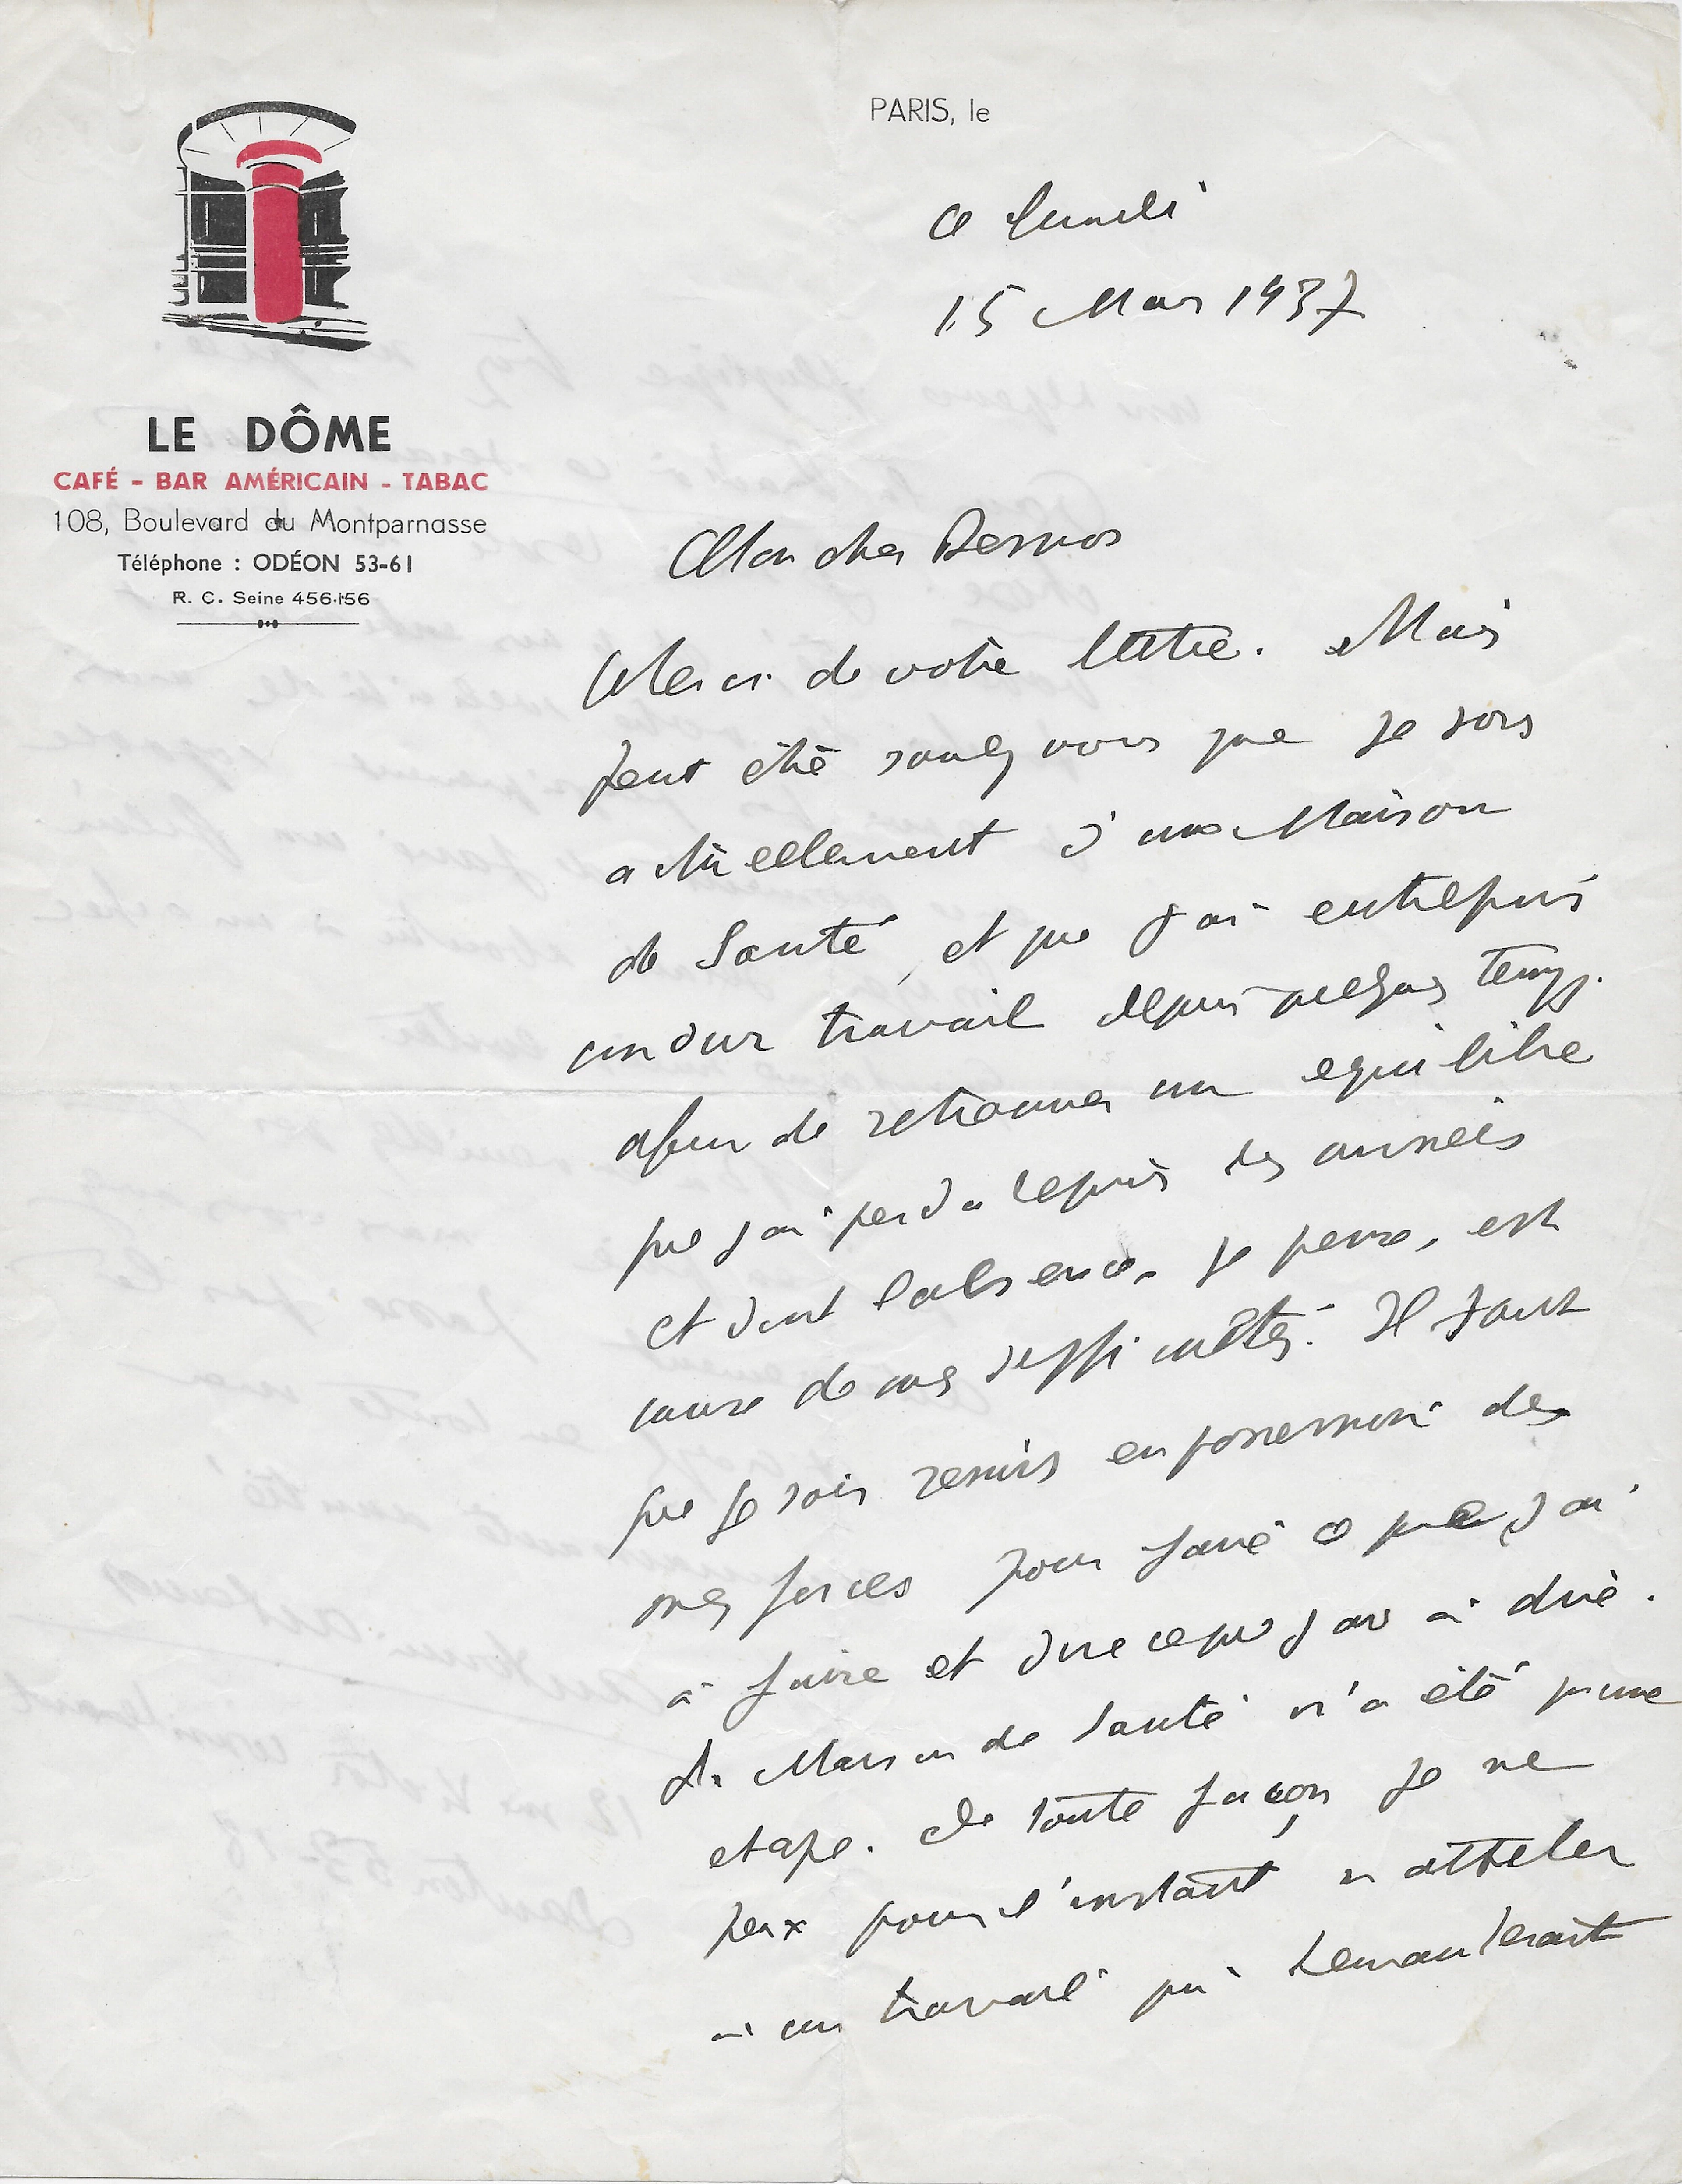 PARIS, le
ce lundi
15 Mars 1937
LE DÔME
CAFÉ - BAR AMÉRICAIN - TABAC
108, Boulevard du Montparnasse
Téléphone : ODÉON 53-61
R. C. Seine 456-156
Mon cher Desnos
Merci de votre lettre. Mais
peut être savez vous que je sors
actuellement d'une Maison
de Santé, et que j'ai entrepris
un dur travail depuis quelques temps
afin de retrouver un equilibre
que j'ai perdu depuis des années
et dont l'absence, je pense, est
cause de mes difficultés. Il faut
que je sois remis en possession de
mes forces pour faire ce que j'ai
à faire et dire ce que j'ai à dire.
La Maison de Santé n'a été qu'une
etape. De toute façon je ne
peux pour l'instant m'atteler
à un travail qui demanderait